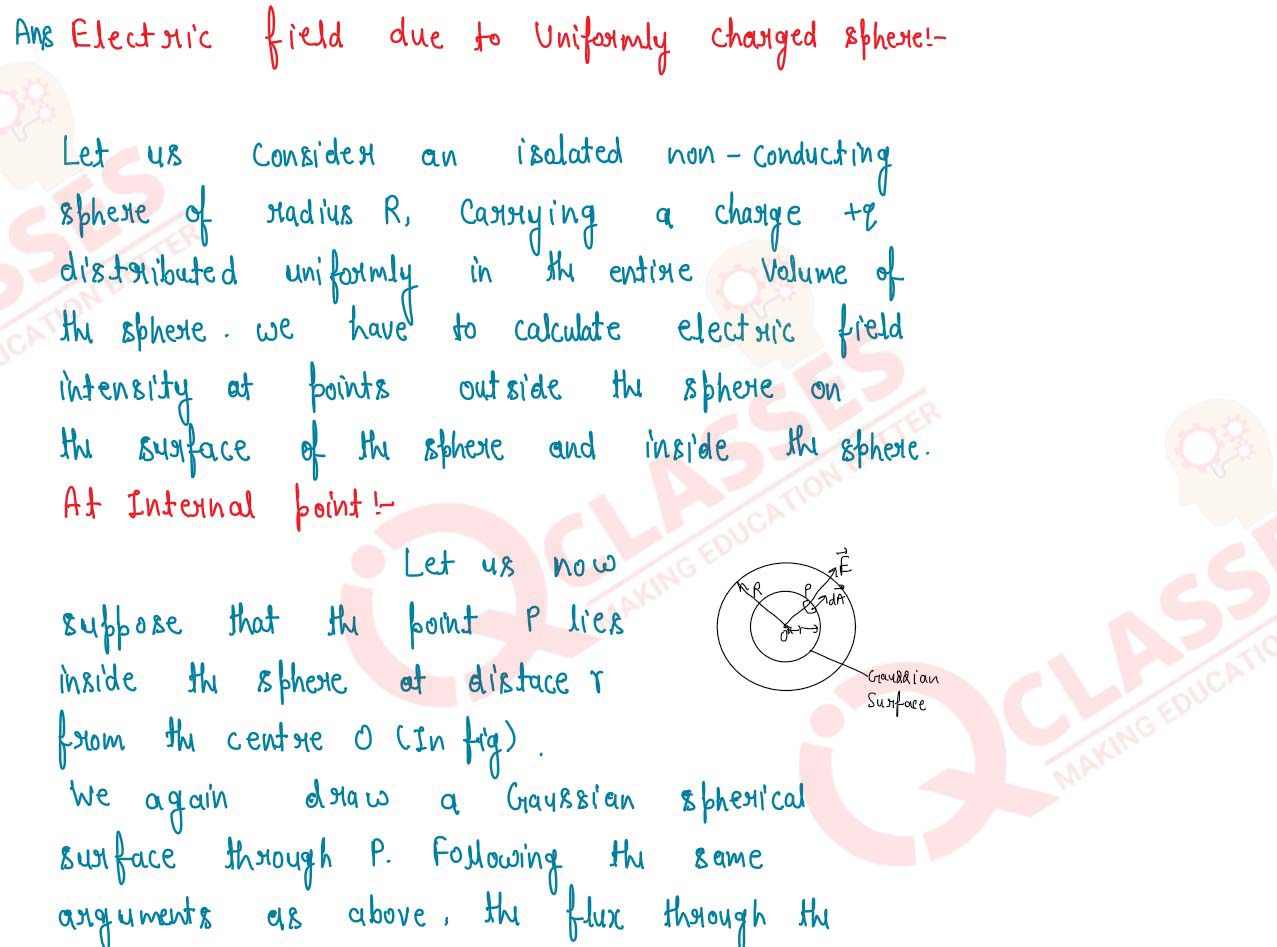 Ans Electric field due to Uniformly charged sphere:-
Let us Consider an isolated non-conducting
sphere of radius R, Carrying a charge +q
distributed uniformly in the entire Volume of
the sphere. we have to calculate electric field
intensity at points outside the sphere on
the surface of the sphere and inside the sphere.
At Internal point:-
Let us now
suppose that the point P lies
inside the sphere at distace r
from the centre O (In fig).
R
P
E⃗
dA⃗
O
r
Gaussian
Surface
We again draw a Gaussian spherical
surface through P. Following the same
arguments as above, the flux through the
iQ CLASSES
MAKING EDUCATION BETTER
iQ CLASSES
MAKING EDUCATION
SSES
UCATION BETTER